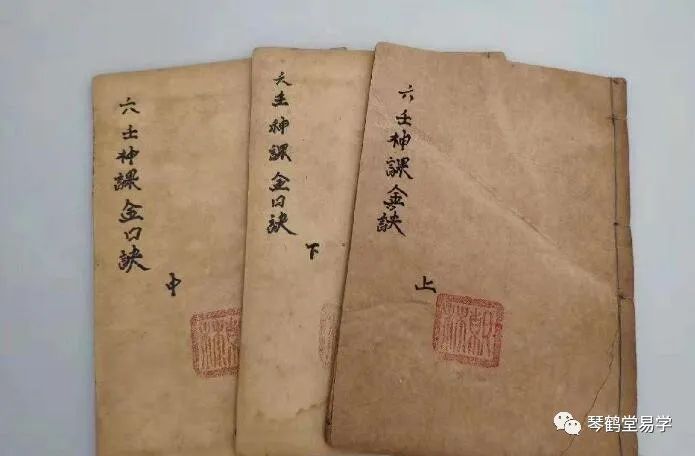 六壬神課金口訣
中
六壬神課金口訣
下
六壬神課金口訣
上
琴鹤堂易学